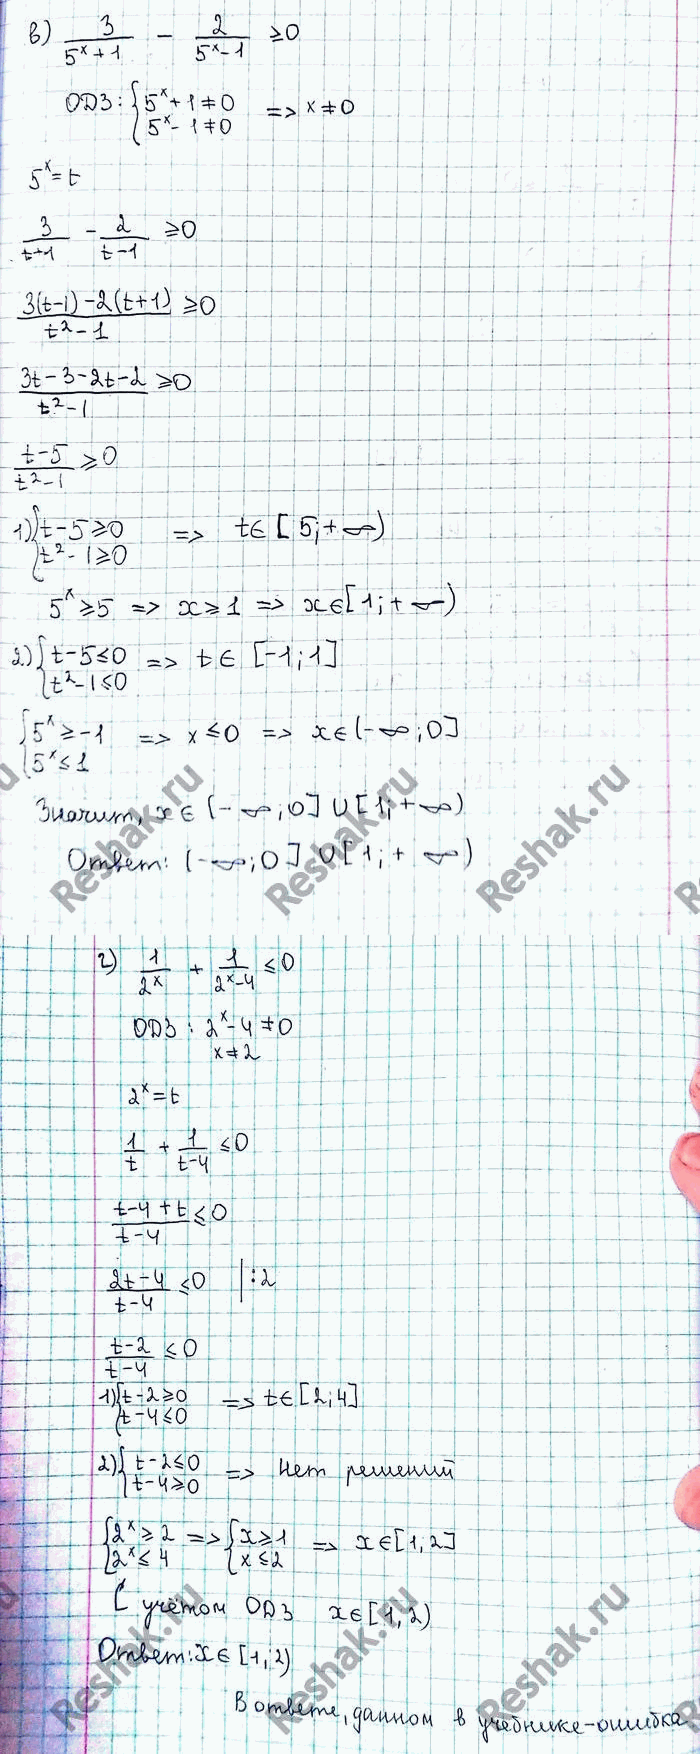 в) 3/(5^x+1) − 2/(5^x−1) ≥0
ОДЗ: {5^x+1≠0 5^x−1≠0 => x≠0
5^x=t
3/(t+1) − 2/(t−1) ≥0
(3(t−1)−2(t+1))/(t²−1) ≥0
(3t−3−2t−2)/(t²−1) ≥0
(t−5)/(t²−1) ≥0
1) {t−5≥0 t²−1≥0 => t∈[5;+∞)
5^x≥5 => x≥1 => x∈[1;+∞)
2) {t−5≤0 t²−1≤0 => t∈[-1;1]
{5^x≥-1 5^x≤1 => x≤0 => x∈(-∞;0]
Значит, x∈(-∞;0]∪[1;+∞)
Ответ: (-∞;0]∪[1;+∞)
Reshak.ru Reshak.ru Reshak.ru
г) 1/2^x + 1/(2^x−4) ≤0
ОДЗ: 2^x−4≠0
x≠2
2^x=t
1/t + 1/(t−4) ≤0
(t−4+t)/(t−4) ≤0
(2t−4)/(t−4) ≤0 |:2
(t−2)/(t−4) ≤0
1) {t−2≥0 t−4≤0 => t∈[2;4]
2) {t−2≤0 t−4≥0 => нет решений
{2^x≥2 2^x≤4 => {x≥1 x≤2 => x∈[1,2]
С учётом ОДЗ x∈[1,2)
Ответ: x∈[1,2)
В ответе, данном в учебнике-ошибка
Reshak.ru Reshak.ru Reshak.ru